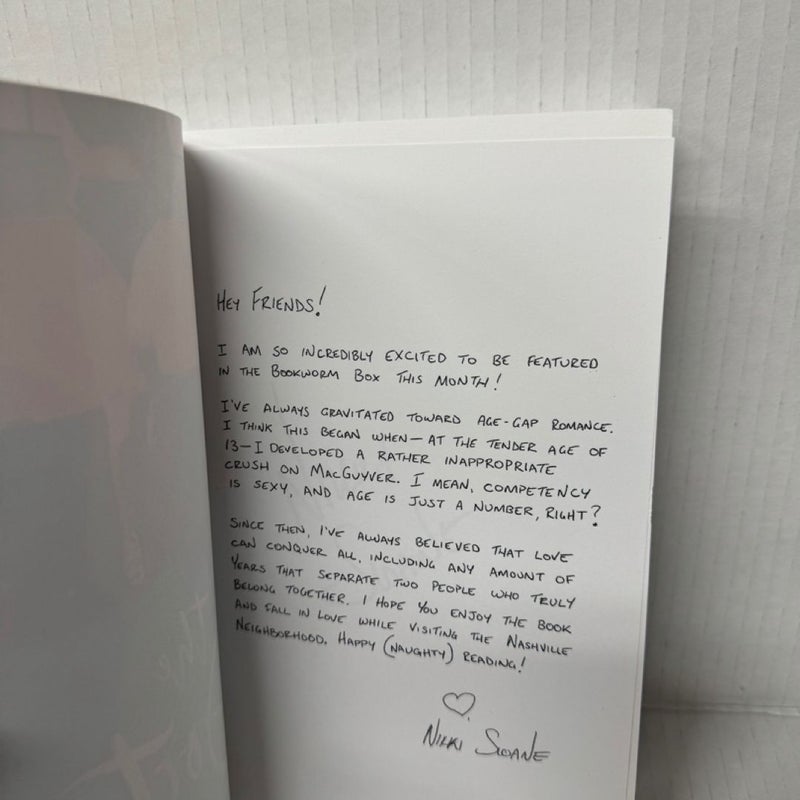 HEY FRIENDS!
I AM SO INCREDIBLY EXCITED TO BE FEATURED
IN THE BOOKWORM BOX THIS MONTH!
I'VE ALWAYS GRAVITATED TOWARD AGE-GAP ROMANCE.
I THINK THIS BEGAN WHEN—AT THE TENDER AGE OF
13—I DEVELOPED A RATHER INAPPROPRIATE
CRUSH ON MACGUYVER. I MEAN, COMPETENCY
IS SEXY, AND AGE IS JUST A NUMBER, RIGHT?
SINCE THEN, I'VE ALWAYS BELIEVED THAT LOVE
CAN CONQUER ALL, INCLUDING ANY AMOUNT OF
YEARS THAT SEPARATE TWO PEOPLE WHO TRULY
BELONG TOGETHER. I HOPE YOU ENJOY THE BOOK
AND FALL IN LOVE WHILE VISITING THE NASHVILLE
NEIGHBORHOOD. HAPPY (NAUGHTY) READING!
NIKKI SLOANE